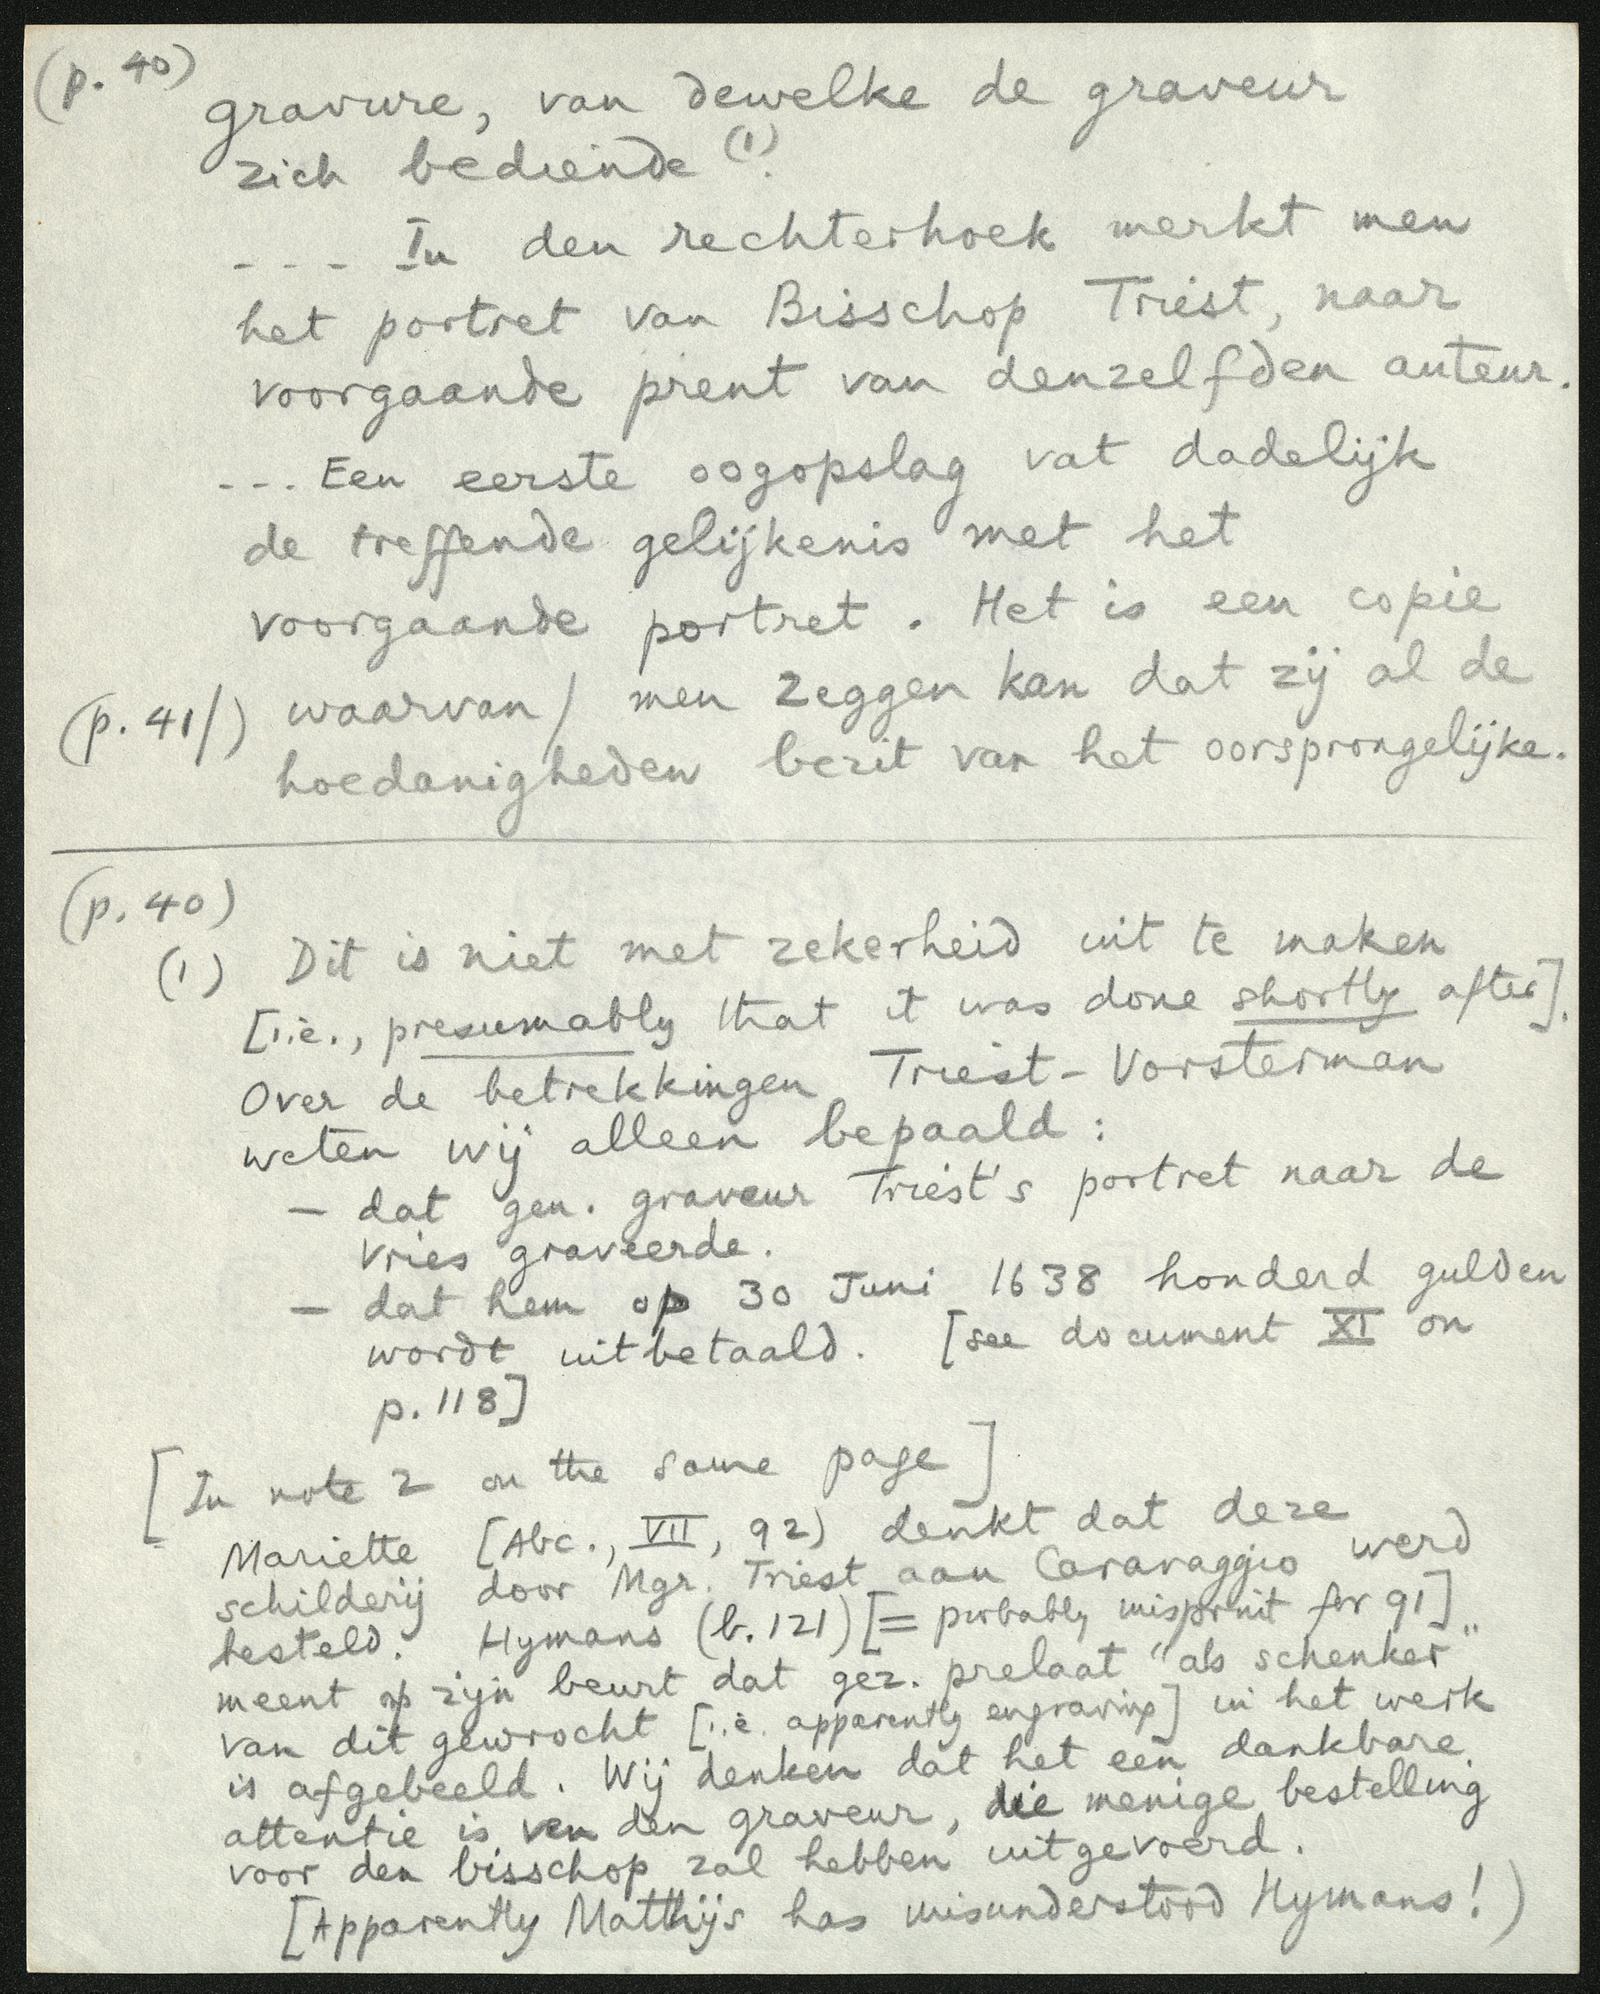 (p. 40) gravure, van dewelke de graveur
zich bediende (1).
- - - In den rechterhoek merkt men
het portret van Bisschop Triest, naar
voorgaande prent van denzelfden auteur.
... Een eerste oogopslag vat dadelijk
de treffende gelijkenis met het
voorgaande portret. Het is een copie
(p. 41/) waarvan / men zeggen kan dat zij al de
hoedanigheden bezit van het oorsprongelijke.
(p. 40)
(1) Dit is niet met zekerheid uit te maken
[i.e., presumably that it was done shortly after].
Over de betrekkingen Triest - Vorsterman
weten wij alleen bepaald:
— dat gen. graveur Triest's portret naar de
Vries graveerde.
— dat hem op 30 Juni 1638 honderd gulden
wordt uitbetaald. [see document XI on
p. 118]
[In note 2 on the same page]
Mariette [Abc., VII, 92) denkt dat deze
schilderij door Mgr. Triest aan Caravaggio werd
besteld. Hymans (b. 121) [= probably misprint for 91]
meent op zijn beurt dat gez. prelaat "als schenker"
van dit gewrocht [i.e. apparently engraving] in het werk
is afgebeeld. Wij denken dat het een dankbare
attentie is van den graveur, die menige bestelling
voor den bisschop zal hebben uitgevoerd.
[Apparently Matthijs has misunderstood Hymans!)